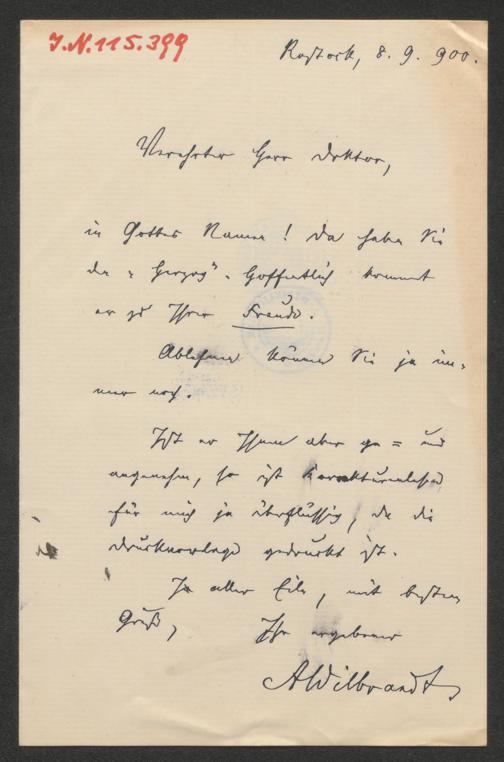 J.N.115.399
Rostock, 8. 9. 900.
Verehrter Herr Doktor,
in Gottes Namen! Da haben Sie
den „Herzog“. Hoffentlich kommt
er zu Ihrer Freude.
Ablehnen können Sie ja im-
mer noch.
Ist er Ihnen aber ge= und
angenehm, so ist Korrekturenlesen
für mich ja überflüssig, da die
Druckvorlage gedruckt ist.
In aller Eile, mit bestem
Gruß, Ihr ergebener
AWilbrandt